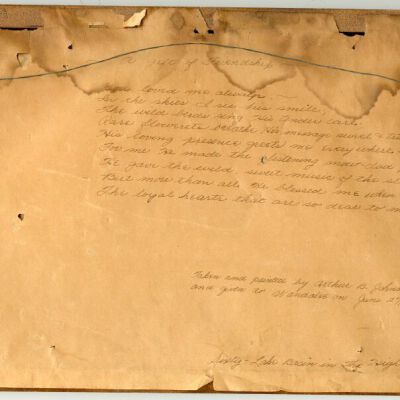 of Friendship
God loved me always
In the skies I see his smile,
The wild birds sing His tender care
Rare flowerets breathe His message sweet &
His loving presence greets me everywhere
For me He made the glistening snow-clad
He gave the world sweet music of the
But more than all, He blessed me when
The loyal hearts that are so dear to
Taken and painted by Arthur B.
and given to on June
Sixty-Lake Basin in the High